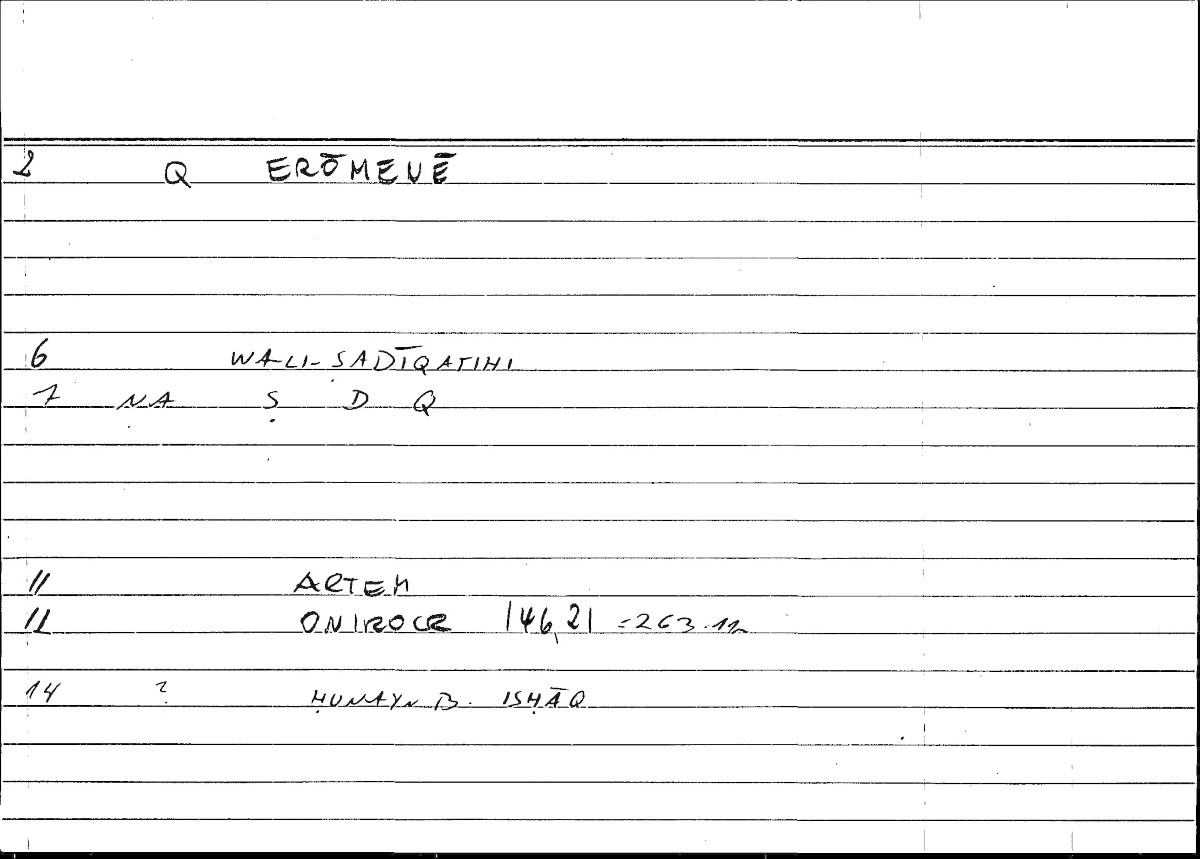 2 Q ERŌMENĒ
6 WA-LI-ṢADĪQATIHI
7 NA Ṣ D Q
11 ARTEM
12 ONIROCR 146,21 =263.12
14 ? ḤUNAYN B. ISḤĀQ